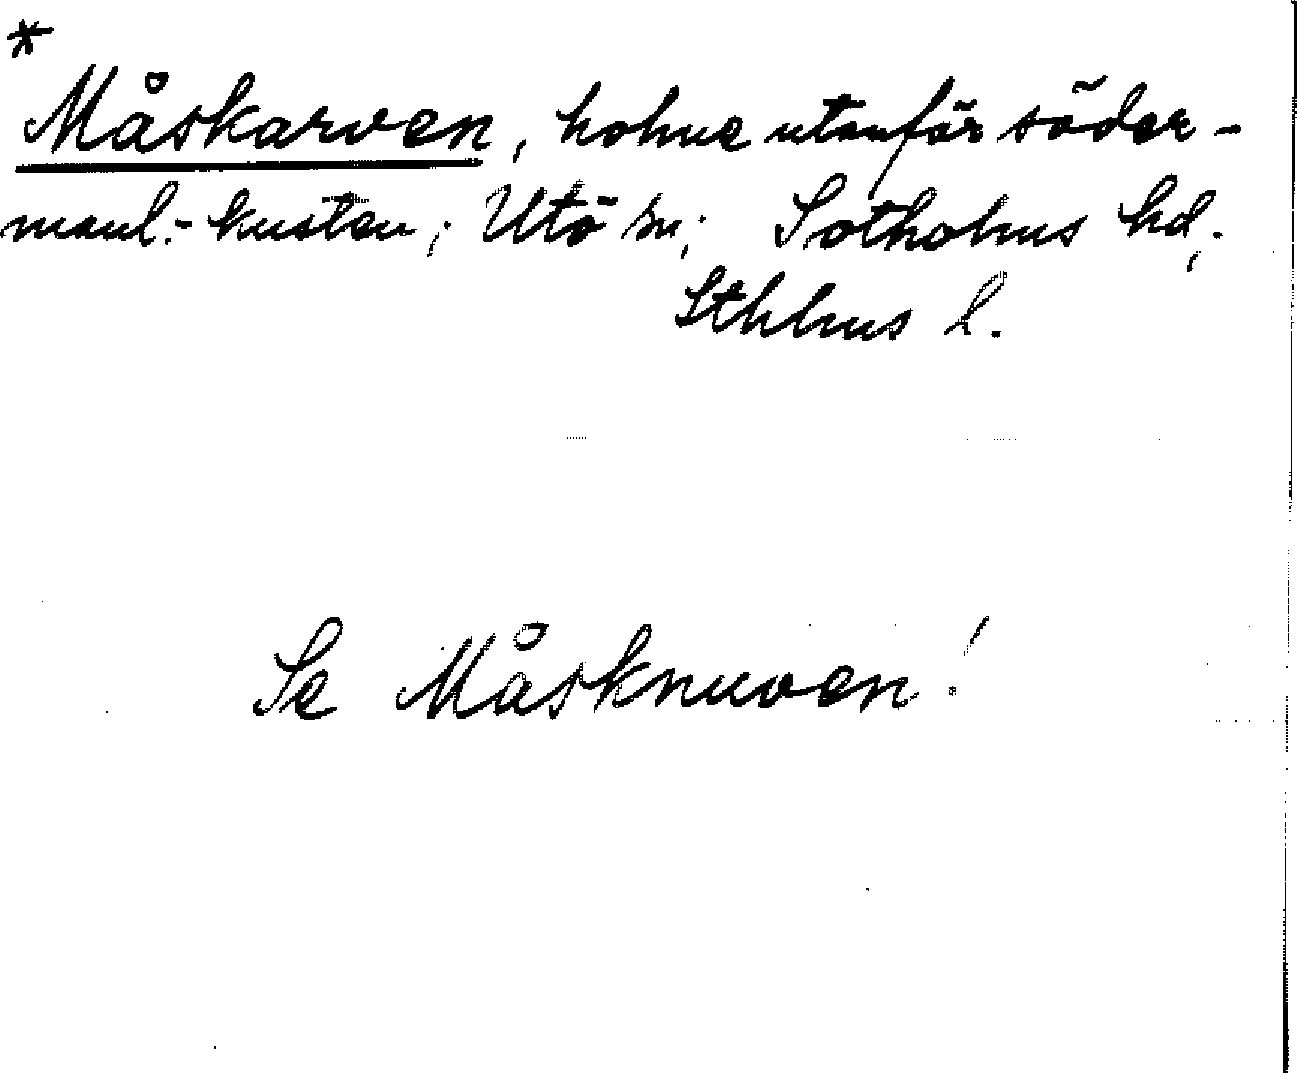 *
Måskarven, holme utanför söder-
manl.-kusten; Utö sn; Sotholms hd,.
Sthlms l.
Se Måsknuven!